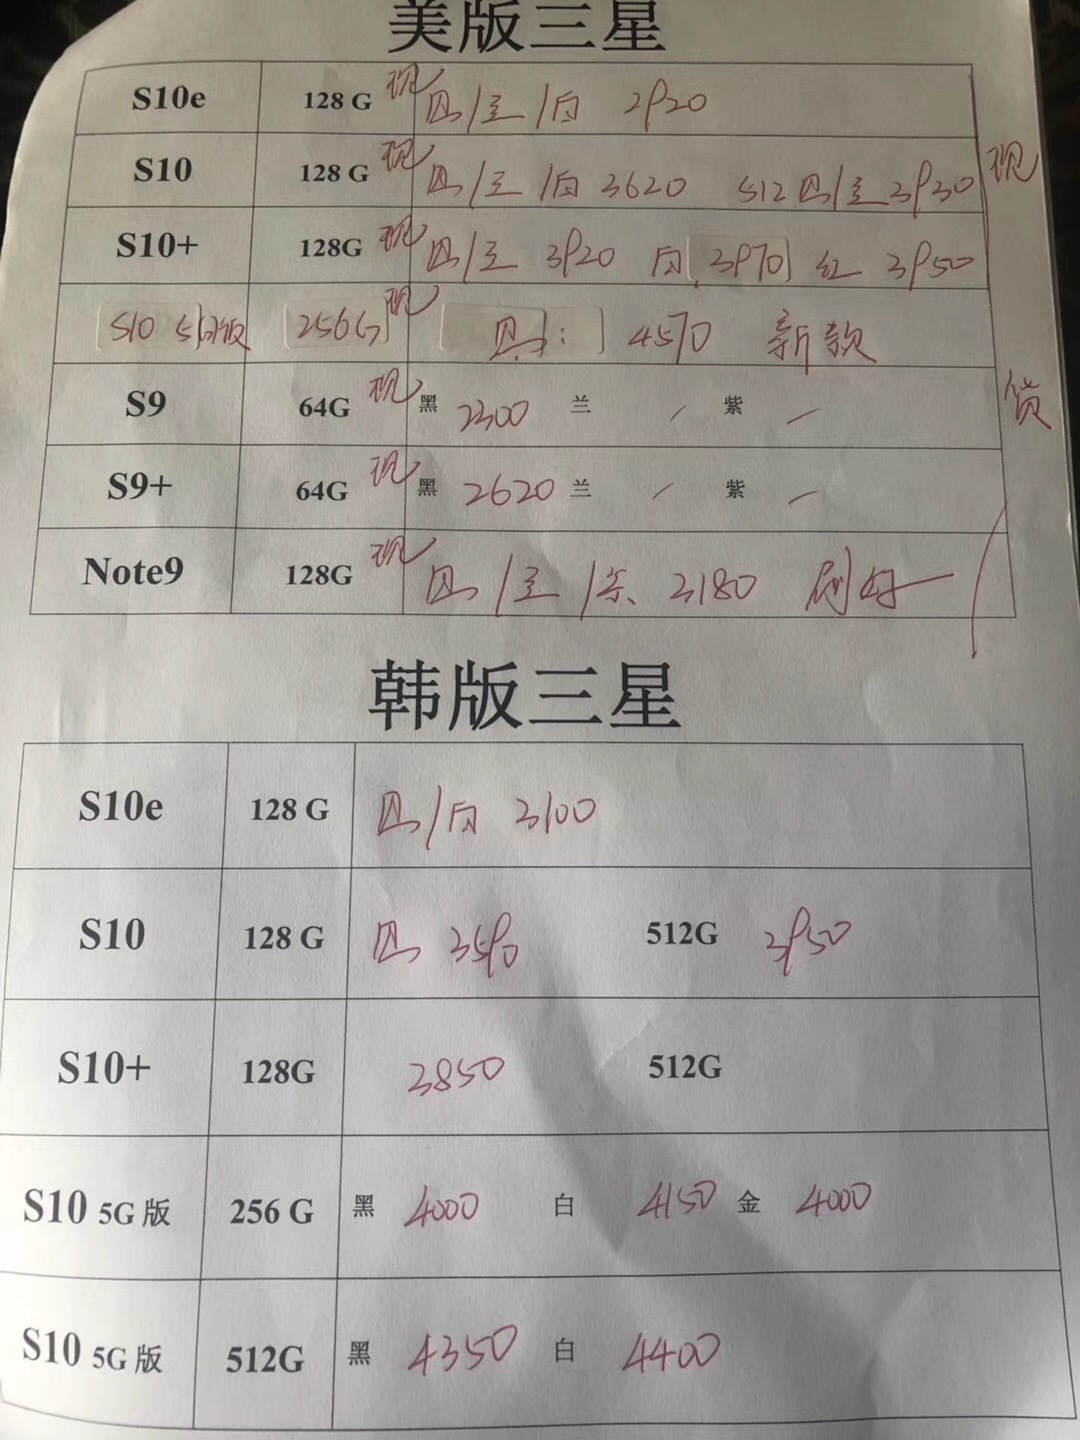 美版三星
S10e 128 G 现 黑/兰/白 2920
S10 128 G 现 黑/兰/白 3620 512 黑/兰 3930
S10+ 128G 现 黑/兰 3920 白 3970 红 3950
S10 5G版 256G 现 黑: 4570 新款
S9 64G 现 黑 2300 兰 / 紫 /
S9+ 64G 现 黑 2620 兰 / 紫 /
Note9 128G 现 黑/兰/紫 3180 刷好
现货
韩版三星
S10e 128 G 黑/白 3100
S10 128 G 黑 3590 512G 3950
S10+ 128G 3850 512G
S10 5G 版 256 G 黑 4000 白 4150 金 4000
S10 5G 版 512G 黑 4350 白 4400